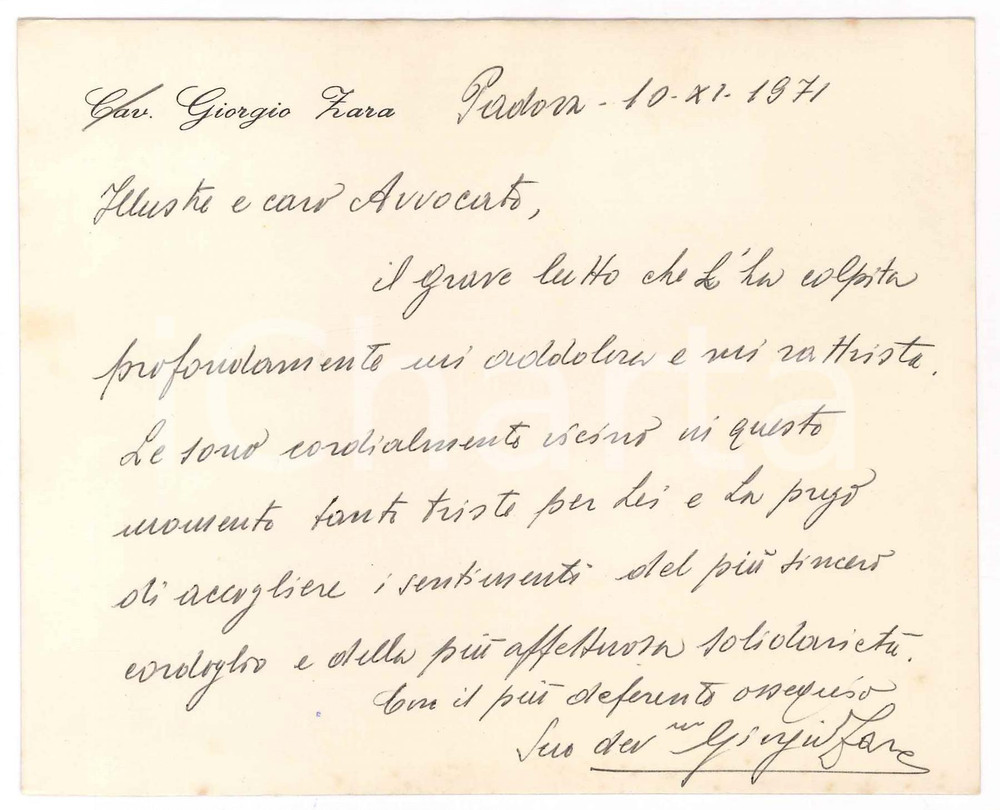 Cav. Giorgio Zara Padova - 10-XI-1971
Illustre e caro Avvocato,
il grave lutto che L'ha colpita
profondamente mi addolora e mi rattrista.
Le sono cordialmente vicino in questo
momento tanto triste per Lei e La prego
di accogliere i sentimenti del più sincero
cordoglio e della più affettuosa solidarietà.
Con il più deferente ossequio
Suo dev.mo Giorgio Zara
iCharta